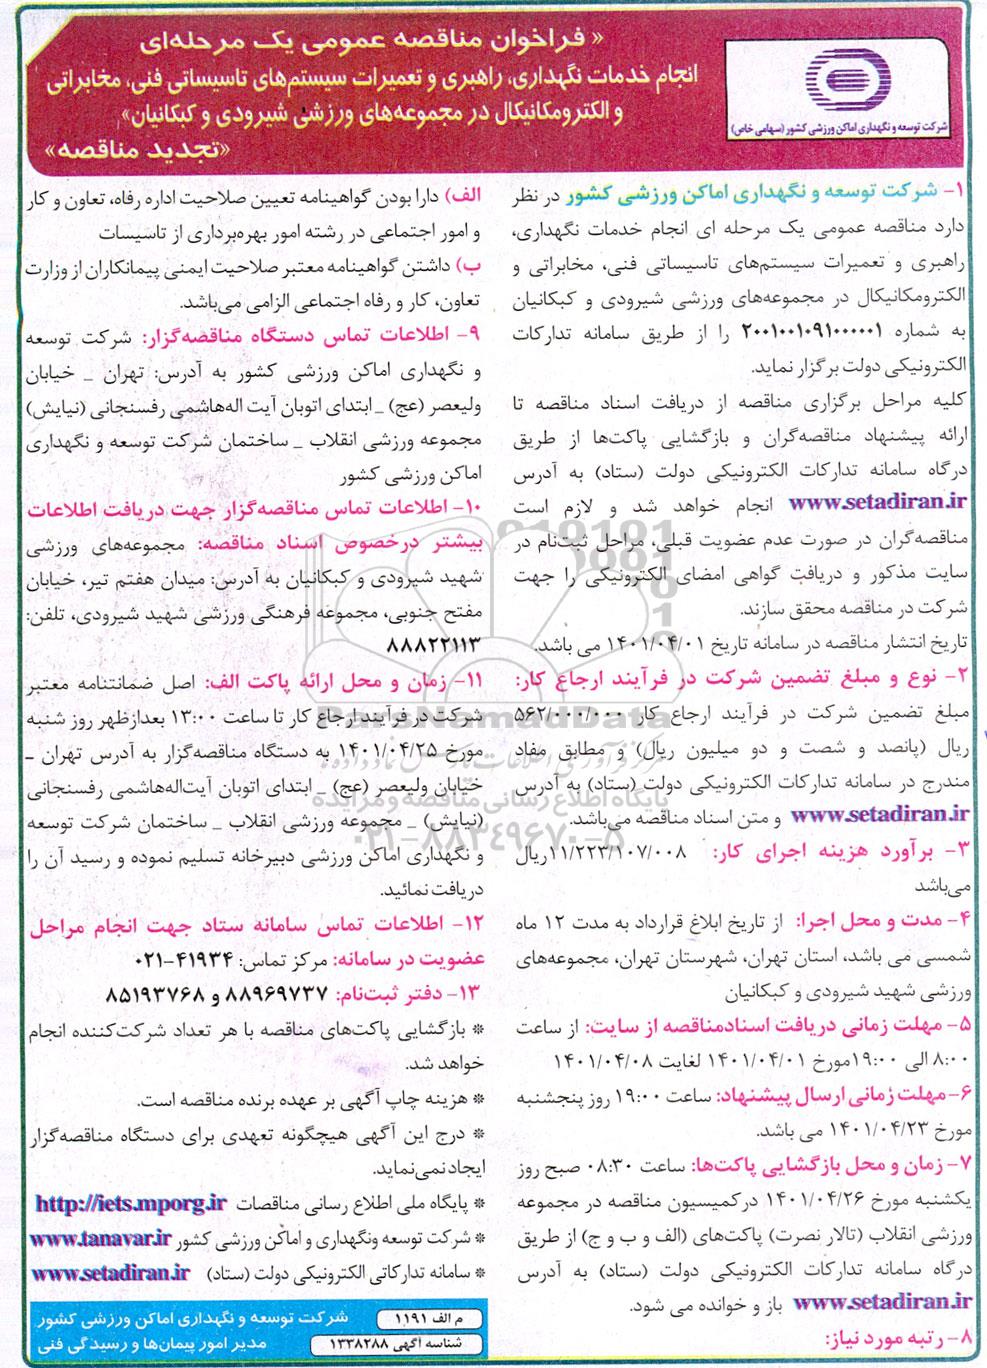 « فراخوان مناقصه عمومی یک مرحله‌ای
انجام خدمات نگهداری، راهبری و تعمیرات سیستم‌های تاسیساتی فنی، مخابراتی
و الکترومکانیکال در مجموعه‌های ورزشی شیرودی و کبکانیان»
«تجدید مناقصه»
شرکت توسعه و نگهداری اماکن ورزشی کشور (سهامی خاص)
۱- شرکت توسعه و نگهداری اماکن ورزشی کشور در نظر
دارد مناقصه عمومی یک مرحله ای انجام خدمات نگهداری،
راهبری و تعمیرات سیستم‌های تاسیساتی فنی، مخابراتی و
الکترومکانیکال در مجموعه‌های ورزشی شیرودی و کبکانیان
به شماره ۲۰۰۱۰۰۱۰۹۱۰۰۰۰۰۱ را از طریق سامانه تدارکات
الکترونیکی دولت برگزار نماید.
کلیه مراحل برگزاری مناقصه از دریافت اسناد مناقصه تا
ارائه پیشنهاد مناقصه‌گران و بازگشایی پاکت‌ها از طریق
درگاه سامانه تدارکات الکترونیکی دولت (ستاد) به آدرس
www.setadiran.ir انجام خواهد شد و لازم است
مناقصه‌گران در صورت عدم عضویت قبلی، مراحل ثبت‌نام در
سایت مذکور و دریافت گواهی امضای الکترونیکی را جهت
شرکت در مناقصه محقق سازند.
تاریخ انتشار مناقصه در سامانه تاریخ ۱۴۰۱/۰۴/۰۱ می باشد.
۲- نوع و مبلغ تضمین شرکت در فرآیند ارجاع کار:
مبلغ تضمین شرکت در فرآیند ارجاع کار ۵۶۲/۰۰۰/۰۰۰
ریال (پانصد و شصت و دو میلیون ریال) و مطابق مفاد
مندرج در سامانه تدارکات الکترونیکی دولت (ستاد) به آدرس
www.setadiran.ir و متن اسناد مناقصه می‌باشد.
۳- برآورد هزینه اجرای کار: ۱۱/۲۲۳/۱۰۷/۰۰۸ریال
می‌باشد
۴- مدت و محل اجرا: از تاریخ ابلاغ قرارداد به مدت ۱۲ ماه
شمسی می باشد، استان تهران، شهرستان تهران، مجموعه‌های
ورزشی شهید شیرودی و کبکانیان
۵- مهلت زمانی دریافت اسنادمناقصه از سایت: از ساعت
۸:۰۰ الی ۱۹:۰۰مورخ ۱۴۰۱/۰۴/۰۱ لغایت ۱۴۰۱/۰۴/۰۸
۶- مهلت زمانی ارسال پیشنهاد: ساعت ۱۹:۰۰ روز پنجشنبه
مورخ ۱۴۰۱/۰۴/۲۳ می باشد.
۷- زمان و محل بازگشایی پاکت‌ها: ساعت ۰۸:۳۰ صبح روز
یکشنبه مورخ ۱۴۰۱/۰۴/۲۶ درکمیسیون مناقصه در مجموعه
ورزشی انقلاب (تالار نصرت) پاکت‌های (الف و ب و ج) از طریق
درگاه سامانه تدارکات الکترونیکی دولت (ستاد) به آدرس
www.setadiran.ir باز و خوانده می شود.
۸- رتبه مورد نیاز:
الف) دارا بودن گواهینامه تعیین صلاحیت اداره رفاه، تعاون و کار
و امور اجتماعی در رشته امور بهره‌برداری از تاسیسات
ب) داشتن گواهینامه معتبر صلاحیت ایمنی پیمانکاران از وزارت
تعاون، کار و رفاه اجتماعی الزامی می‌باشد.
۹- اطلاعات تماس دستگاه مناقصه‌گزار: شرکت توسعه
و نگهداری اماکن ورزشی کشور به آدرس: تهران _ خیابان
ولیعصر (عج) _ ابتدای اتوبان آیت اله‌هاشمی رفسنجانی (نیایش)
مجموعه ورزشی انقلاب _ ساختمان شرکت توسعه و نگهداری
اماکن ورزشی کشور
۱۰- اطلاعات تماس مناقصه‌گزار جهت دریافت اطلاعات
بیشتر درخصوص اسناد مناقصه: مجموعه‌های ورزشی
شهید شیرودی و کبکانیان به آدرس: میدان هفتم تیر، خیابان
مفتح جنوبی، مجموعه فرهنگی ورزشی شهید شیرودی، تلفن:
۸۸۸۲۲۱۱۳
۱۱- زمان و محل ارائه پاکت الف: اصل ضمانتنامه معتبر
شرکت در فرآیند ارجاع کار تا ساعت ۱۳:۰۰ بعدازظهر روز شنبه
مورخ ۱۴۰۱/۰۴/۲۵ به دستگاه مناقصه‌گزار به آدرس تهران _
خیابان ولیعصر (عج) _ ابتدای اتوبان آیت‌اله‌هاشمی رفسنجانی
(نیایش) _ مجموعه ورزشی انقلاب _ ساختمان شرکت توسعه
و نگهداری اماکن ورزشی دبیرخانه تسلیم نموده و رسید آن را
دریافت نمائید.
۱۲- اطلاعات تماس سامانه ستاد جهت انجام مراحل
عضویت در سامانه: مرکز تماس: ۴۱۹۳۴-۰۲۱
۱۳- دفتر ثبت‌نام: ۸۸۹۶۹۷۳۷ و ۸۵۱۹۳۷۶۸
* بازگشایی پاکت‌های مناقصه با هر تعداد شرکت‌کننده انجام
خواهد شد.
* هزینه چاپ آگهی بر عهده برنده مناقصه است.
* درج این آگهی هیچگونه تعهدی برای دستگاه مناقصه‌گزار
ایجاد نمی‌نماید.
* پایگاه ملی اطلاع رسانی مناقصات http://iets.mporg.ir
* شرکت توسعه ونگهداری و اماکن ورزشی کشور www.tanavar.ir
* سامانه تدارکاتی الکترونیکی دولت (ستاد) www.setadiran.ir
م الف ۱۱۹۱
شناسه آگهی ۱۳۳۸۲۸۸
شرکت توسعه و نگهداری اماکن ورزشی کشور
مدیر امور پیمان‌ها و رسیدگی فنی
ParsNamadData
پایگاه اطلاع رسانی مناقصه و مزایده
۰۲۱-۸۸۳۴۹۶۷۰-۵